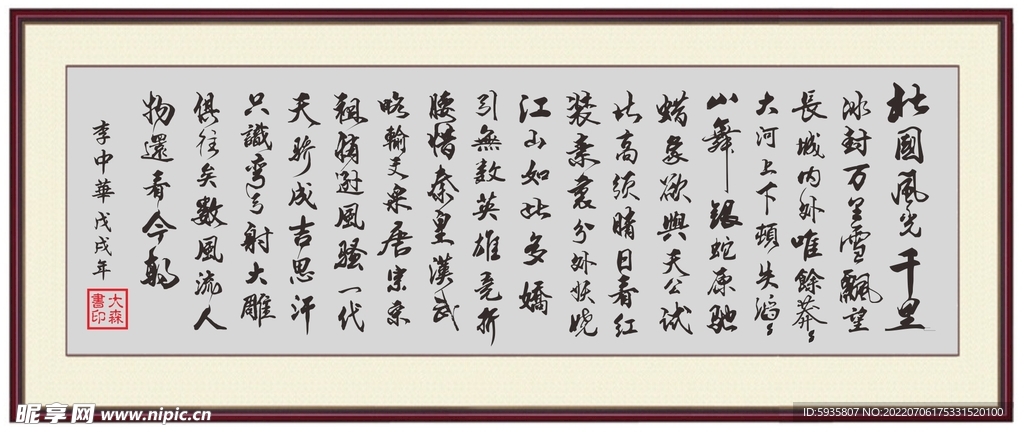 北國風光千里
冰封万里雪飄望
長城内外唯餘莽々
大河上下頓失滔々
山舞銀蛇原驰
蜡象欲與天公试
比高须晴日看红
装素裹分外妖娆
江山如此多嬌
引無数英雄竞折
腰惜秦皇漢武
略輸文采唐宗宋
祖稍逊風骚一代
天骄成吉思汗
只識彎弓射大雕
俱往矣数風流人
物還看今朝
李中華戊戌年
大森書印
昵享网 www.nipic.cn
ID:5935807 NO:20220706175331520100